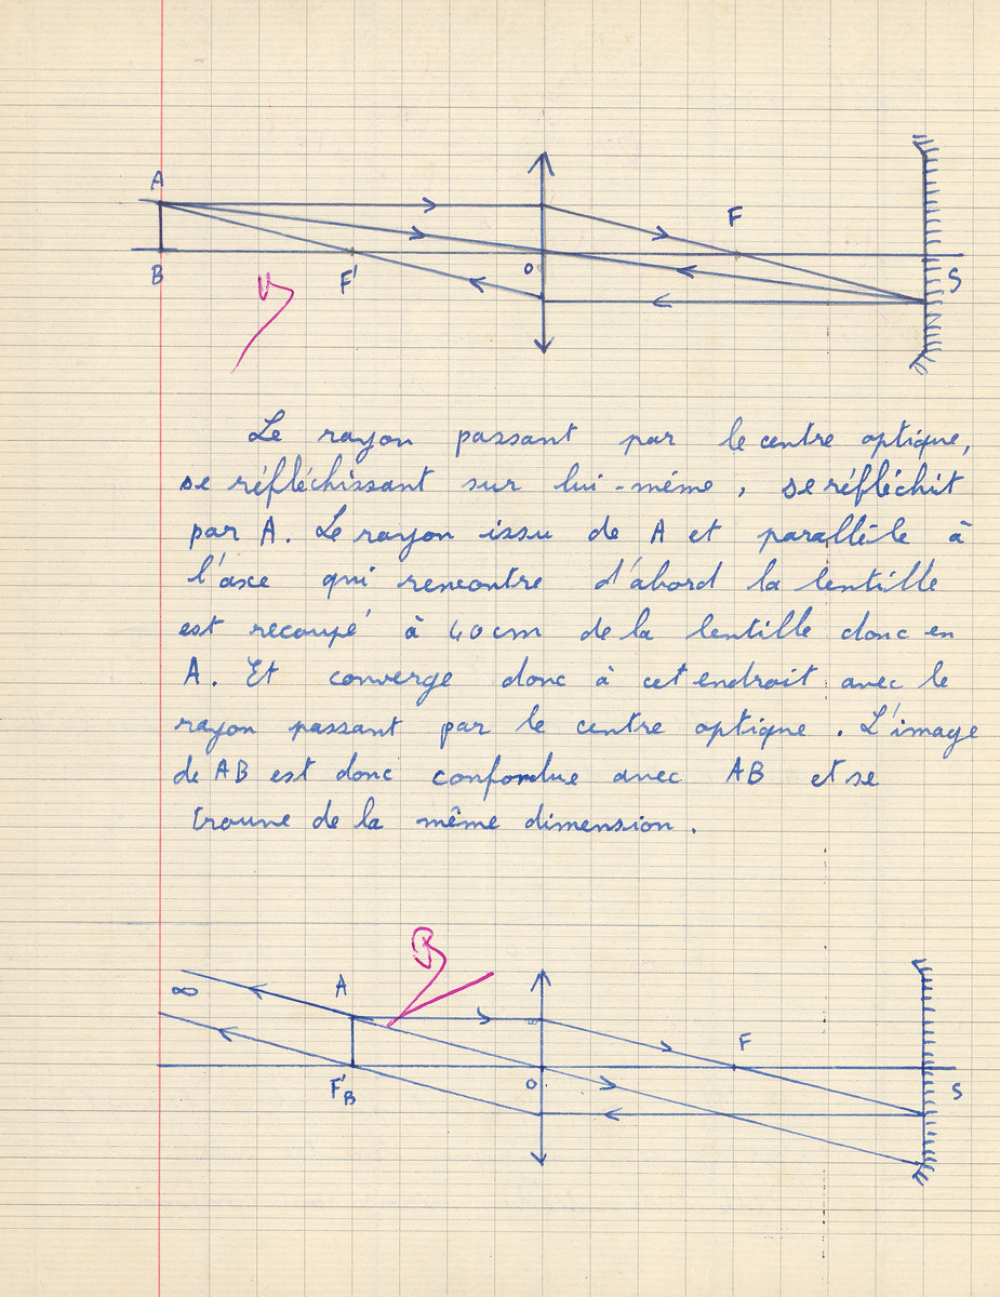 A
F
B
F'
O
S
Le rayon passant par le centre optique,
se réfléchissant sur lui-même, se réfléchit
par A. Le rayon issu de A et parallèle à
l'axe qui rencontre d'abord la lentille
est recoupé à 40 cm de la lentille donc en
A. Et converge donc à cet endroit avec le
rayon passant par le centre optique. L'image
de AB est donc confondue avec AB et se
trouve de la même dimension.
∞
A
F
F'B
O
S